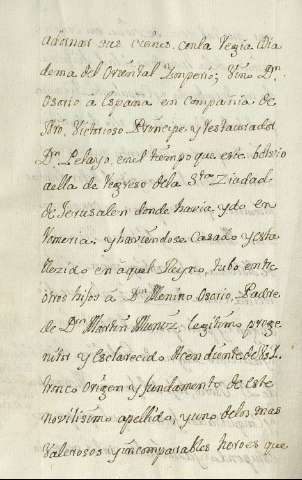 adornar sus cienes con la regia Dia
dema del Oriental Imperio; vino Dn.
Osorio â España en compañia de
Ntro. Victorioso Principe y restaurador
Dn. Pelayo, en el tiempo que este bolvio
a ella de regreso de la Sta. Ziudad
de Jerusalen donde havia ydo en
romeria; y haviendose Casado y esta
blezido en aquel Reyno, tubo entre
otros hijos â Dn. Menino Osorio, Padre
de Dn. Martin Muñiz, legitimo proge
nitor y esclarecido Ascendiente de
tronco Origen y fundamento de este
novilisimo apellido, y uno de los mas
Valerosos y incomparables heroes que